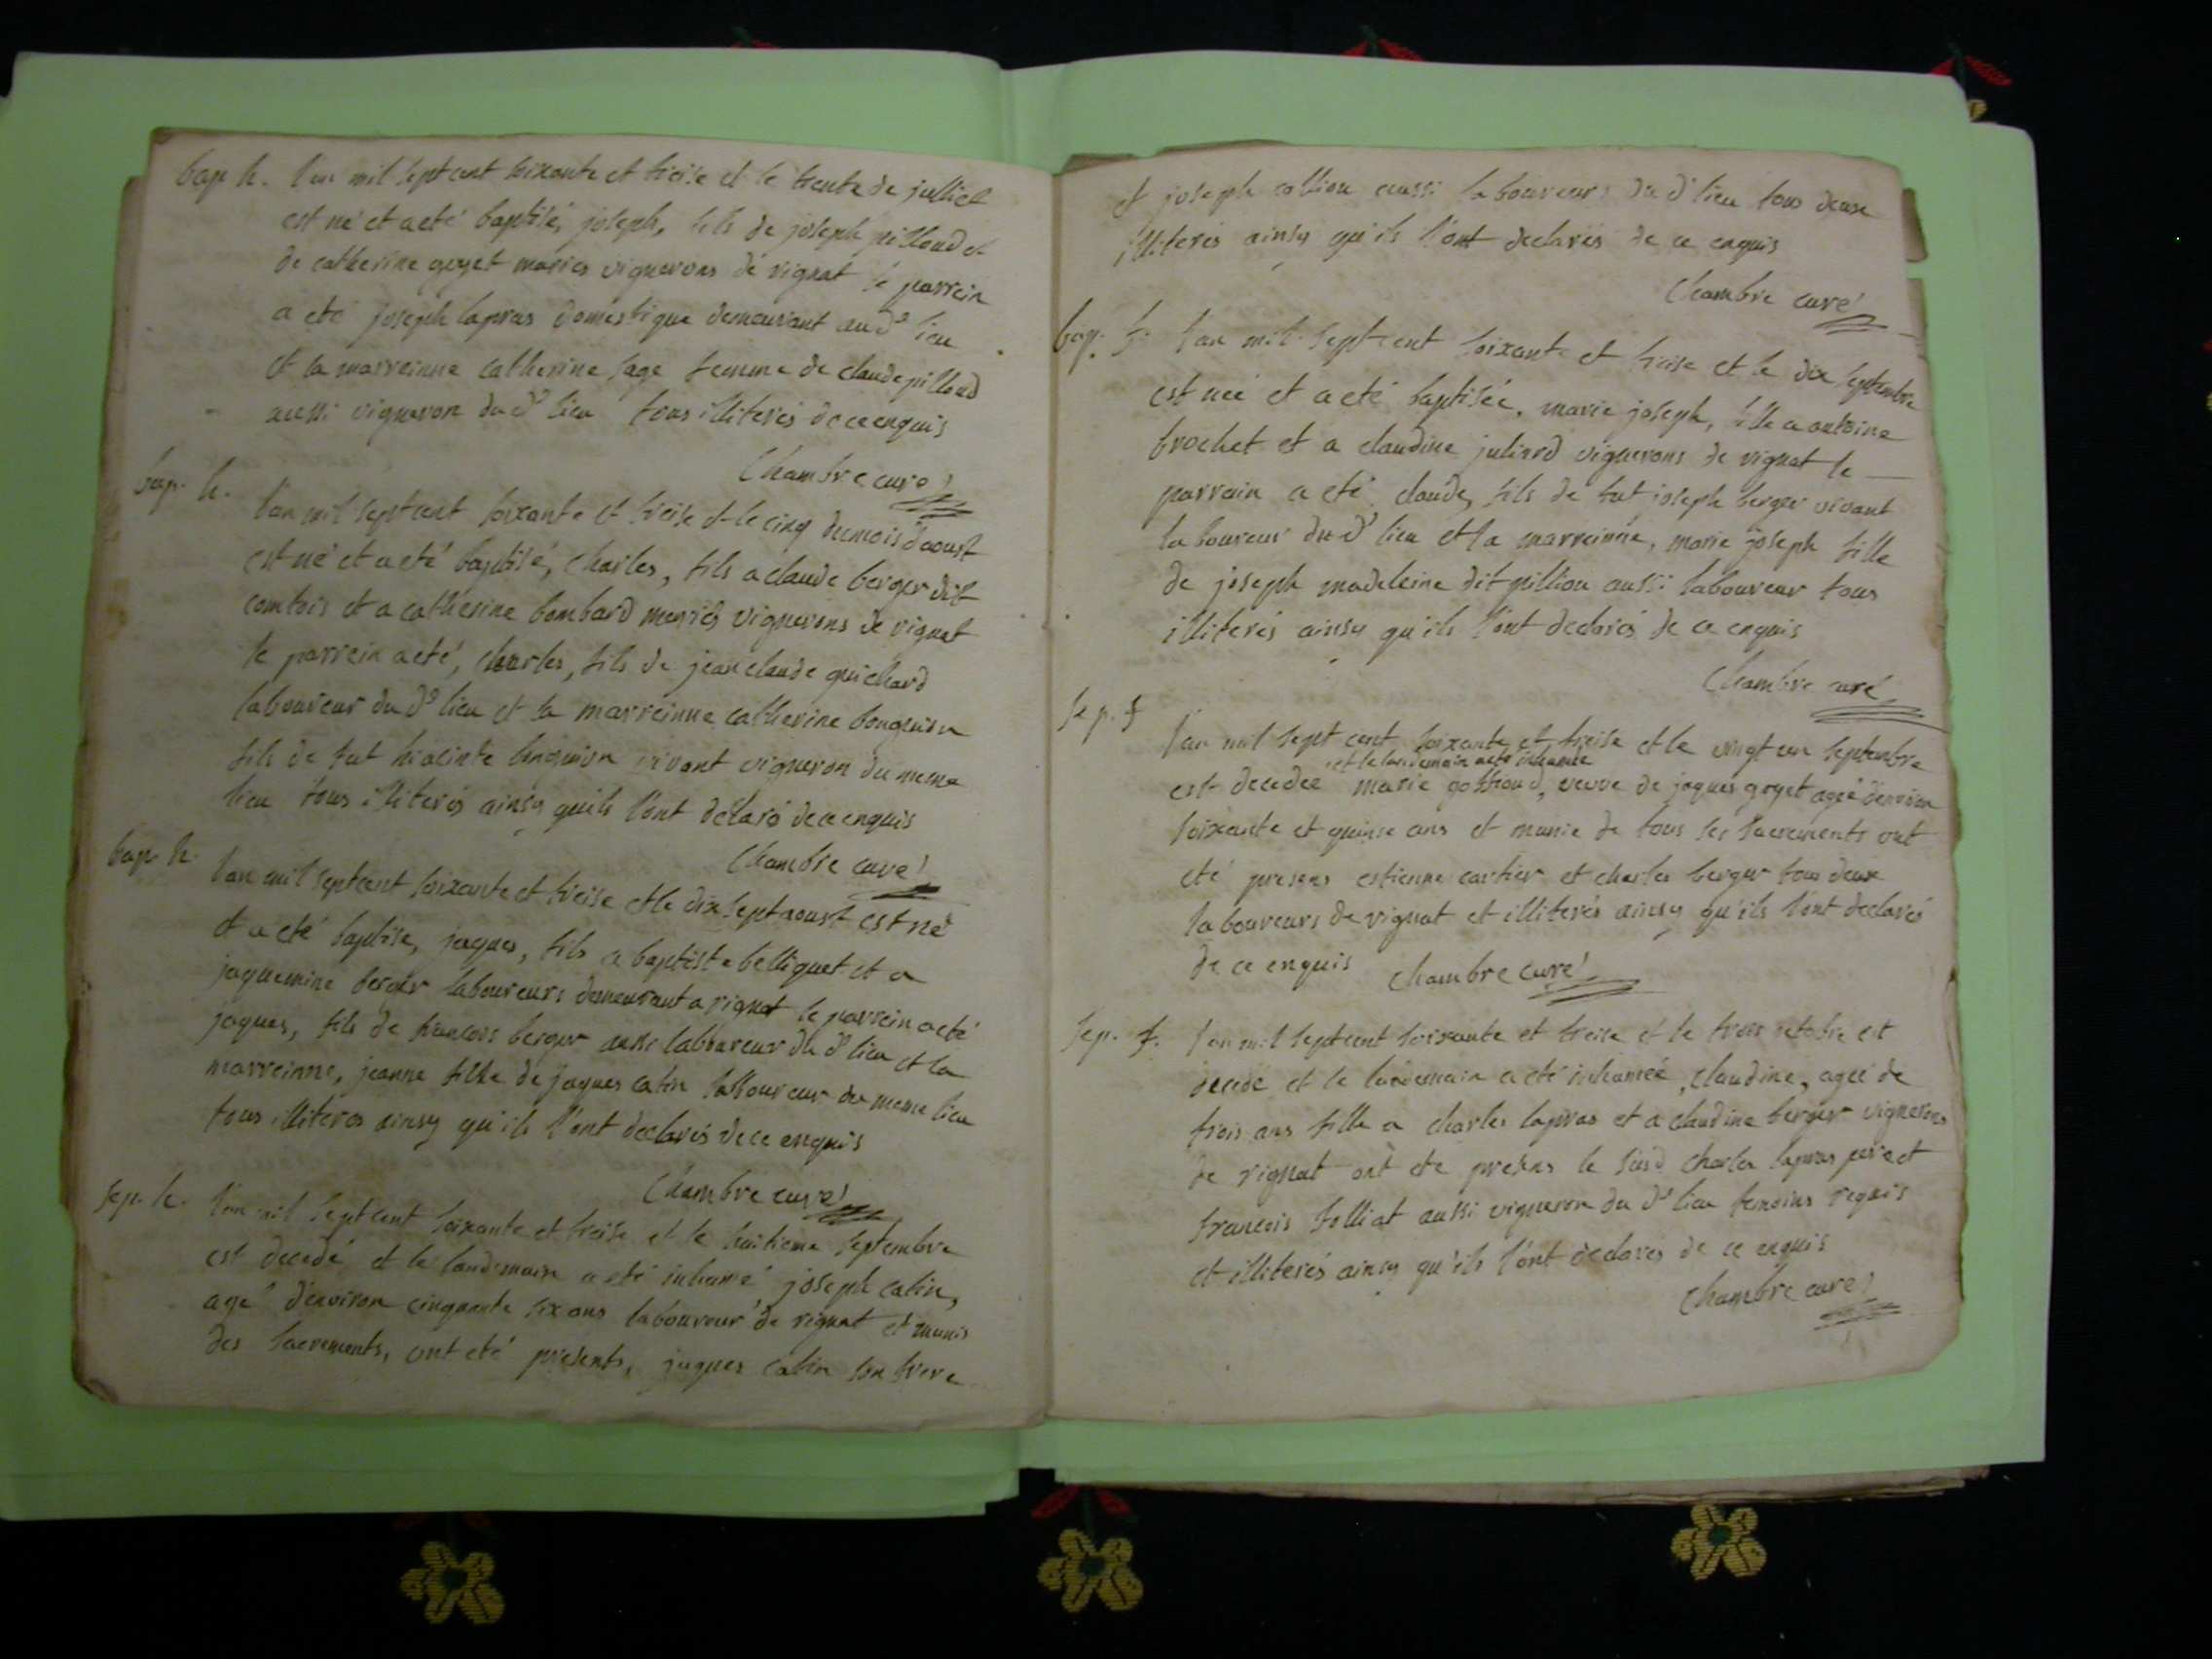 bap. h. l'an mil sept cent soixante et treise et le trente de julliet
est né et a eté baptisé, joseph, fils de joseph pilloud et
de catherine goyet mariés vignerons de rignat le parrein
a eté joseph lapras domestique demeurant au d° lieu
et la marreinne catherine sage femme de claude pilloud
aussi vigneron du d° lieu tous illiterés de ce enquis
Chambre curé
bap. h. l'an mil sept cent soixante et treise et le cinq du mois d'aoust
est né et a eté baptisé, Charles, fils a claude berger dit
comtois et a catherine bombard mariés vignerons de rignat
le parrein a eté, charles, fils de jean claude guichard
laboureur du d° lieu et la marreinne catherine
fils de fut hiacinte vivant vigneron du meme
lieu tous illiterés ainsy qu'ils l'ont declaré de ce enquis
Chambre curé
bap. h. l'an mil sept cent soixante et treise et le dix sept aoust est né
et a eté baptise, jaques, fils a baptiste belliquet et a
jaquemine berger laboureurs demeurant a rignat le parrein a eté
jaques, fils de francois berger aussi laboureur du d° lieu et la
marreinne, jeanne fille de jaques catin laboureur du meme lieu
tous illiteres ainsy qu'ils l'ont declarés de ce enquis
Chambre curé
sep. h. l'an mil sept cent soixante et treise et le huitieme septembre
est decedé et le landemain a eté inhumé, joseph catin,
agé d'environ cinquante six ans laboureur de rignat et munis
des sacrements, ont eté presents, jaques catin son frere
et joseph collion aussi laboureurs du d° lieu tous deux
illiterés ainsy qu'ils l'ont declarés de ce enquis
Chambre curé
bap. f. l'an mil sept cent soixante et treise et le dix septembre
est née et a eté baptisée, marie joseph, fille a antoine
brochet et a claudine juliard vignerons de rignat le
parrain a eté claude, fils de fut joseph berger vivant
laboureur du d° lieu et la marreinne, marie joseph fille
de joseph madeleine dit pillion aussi laboureur tous
illiterés ainsy qu'ils l'ont declarés de ce enquis
Chambre curé
sep. f l'an mil sept cent soixante et treise et le vingt un septembre
et le landemain a eté inhumée
est decedée marie veuve de jaques goyet agée d'environ
soixante et quinse ans et munie de tous ses sacrements ont
eté presens estienne cartier et charles berger tous deux
laboureurs de rignat et illiterés ainsy qu'ils l'ont declarés
de ce enquis Chambre curé
sep. f. l'an mil sept cent soixante et treise et le trois octobre est
decedé et le landemain a eté inhumée, claudine, agée de
trois ans fille a charles lapras et a claudine berger vignerons
de rignat ont eté presens le susd charles lapras pere et
francois folliat aussi vigneron du d° lieu temoins requis
et illiterés ainsy qu'ils l'ont declarés de ce enquis
Chambre curé